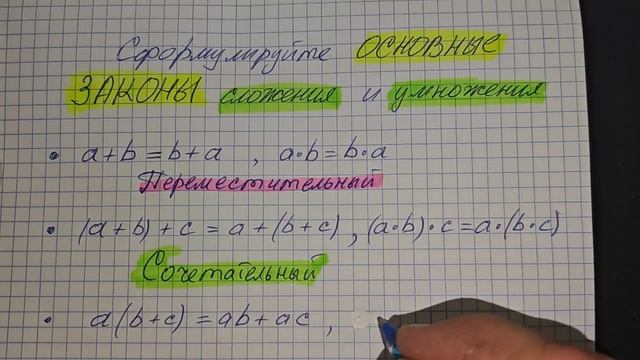 Сформулируйте ОСНОВНЫЕ
ЗАКОНЫ сложения и умножения
• a+b=b+a , a·b=b·a
Переместительный
• (a+b)+c=a+(b+c), (a·b)·c=a·(b·c)
Сочетательный
• a(b+c)=ab+ac,